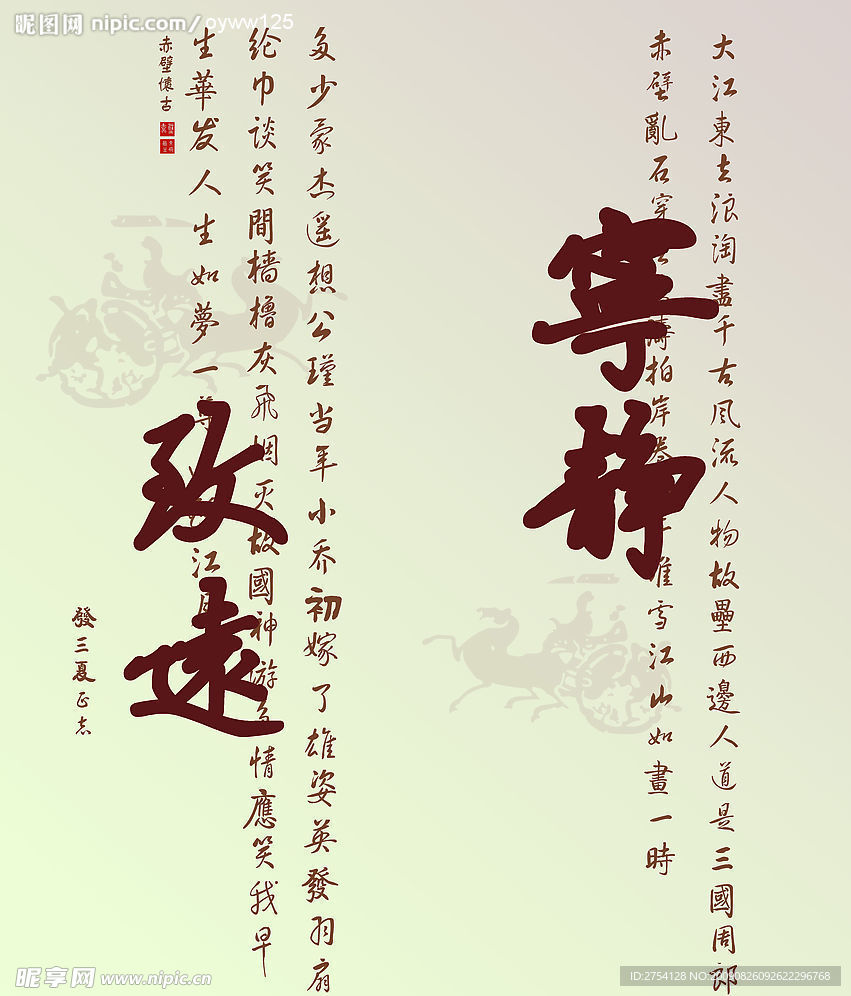 昵图网 nipic.com/oyww125
大江東去浪淘盡千古風流人物故壘西邊人道是三國周郎
赤壁亂石穿濤拍岸卷堆雪江山如畫一時
寧靜
多少豪杰遥想公瑾当年小乔初嫁了雄姿英發羽扇
纶巾谈笑間樯橹灰飛烟灭故國神游多情應笑我早
生華发人生如夢一尊江月
致遠
赤壁懷古
發三夏正志
昵享网 www.nipic.cn
ID:2754128 NO:20090826092622296768